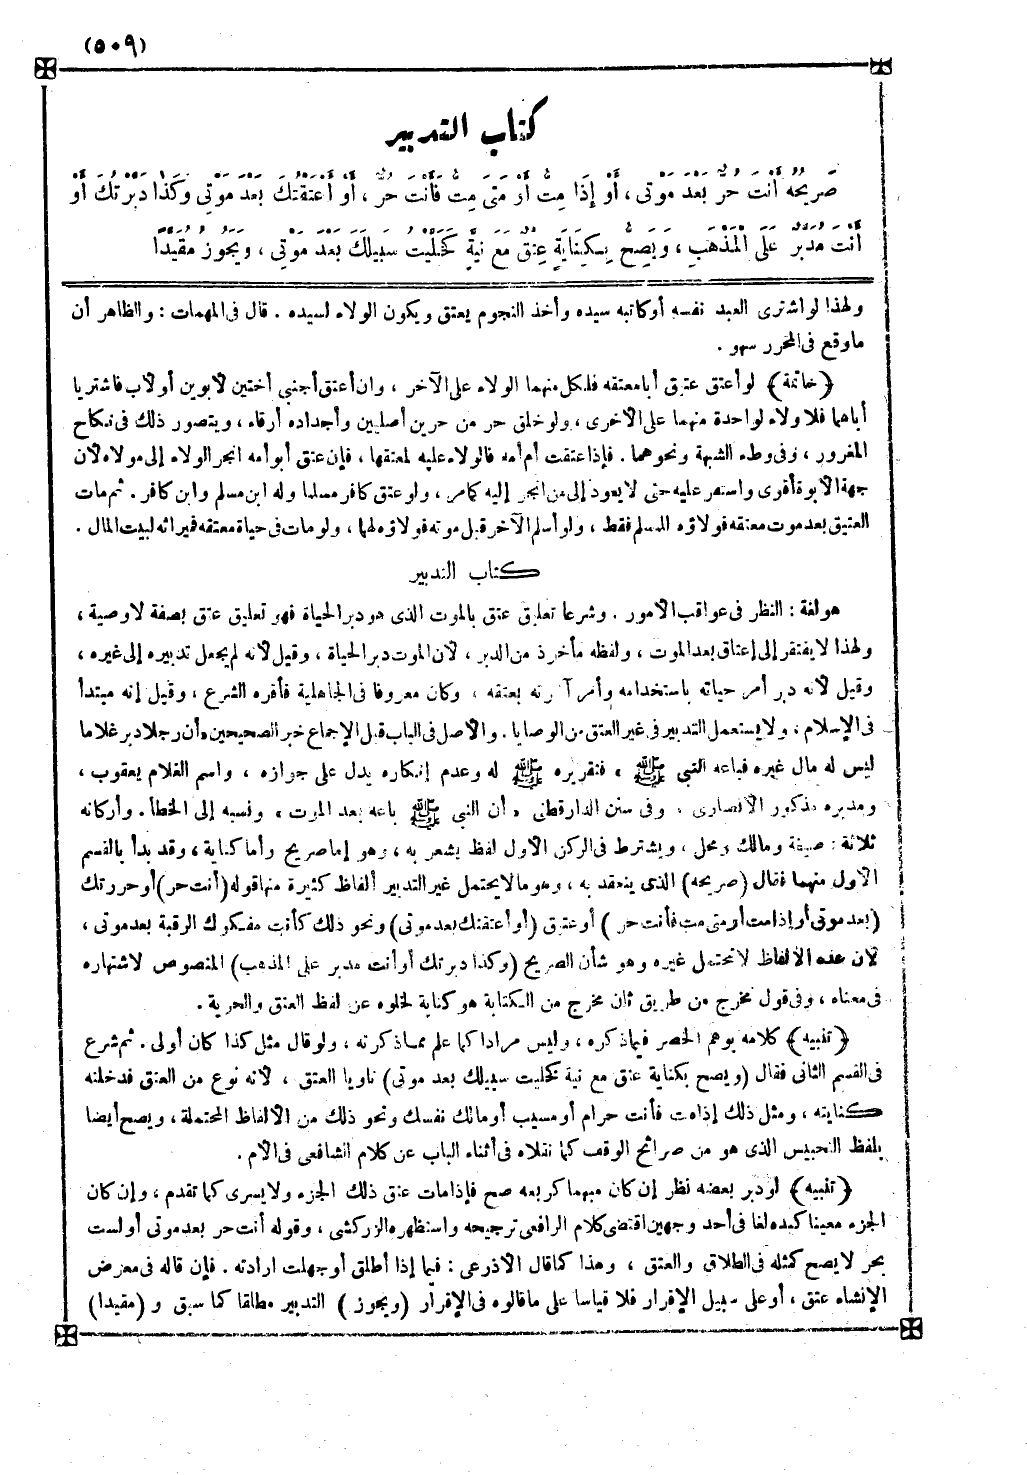 (٥٠٩)
كتاب التدبير
صَرِيحُهُ أَنْتَ حُرٌّ بَعْدَ مَوْتِى ، أَوْ إِذَا مِتُّ أَوْ مَتَى مِتُّ فَأَنْتَ حُرٌّ ، أَوْ أَعْتَقْتُكَ بَعْدَ مَوْتِى وَكَذَا دَبَّرْتُكَ أَوْ
أَنْتَ مُدَبَّرٌ عَلَى الْمَذْهَبِ ، وَيَصِحُّ بِكِنَايَةِ عِتْقٍ مَعَ نِيَّةٍ كَخَلَّيْتُ سَبِيلَكَ بَعْدَ مَوْتِى ، وَيَجُوزُ مُقَيَّدًا
ولهذا لو اشترى العبد نفسه أو كاتبه سيده وأخذ النجوم يعتق ويكون الولاء لسيده . قال فى المهمات : والظاهر أن
ما وقع فى المحرر سهو .
﴿ خاتمة ﴾ لو أعتق عتيق أبا معتقه فلكل منهما الولاء على الآخر ، وان أعتق أجنبي أختين لأبوين أو لأب فاشتريا
أباهما فلا ولاء لواحدة منهما على الأخرى ، ولو خلق حر من حرين أصليين وأجداده أرقاء ، ويتصور ذلك فى نكاح
المغرور ، وفى وطء الشبهة ونحوهما . فإذا عتقت أم أمه فالولاء عليه لمعتقها ، فإن عتق أبو أمه انجر الولاء إلى مولاه لأن
جهة الأبوة أقوى واستقر عليه حتى لا يعود إلى من انجر إليه كما مر ، ولو عتق كافر مسلما وله ابن مسلم وابن كافر . ثم مات
العتيق بعد موت معتقه فولاؤه للمسلم فقط ، ولو أسلم الآخر قبل موته فولاؤه لهما ، ولو مات فى حياة معتقه فميراثه لبيت المال .
كتاب التدبير
هو لغة : النظر فى عواقب الأمور . وشرعا تعليق عتق بالموت الذى هو دبر الحياة فهو تعليق عتق بصفة لا وصية ،
ولهذا لا يفتقر إلى إعتاق بعد الموت ، ولفظه مأخوذ من الدبر ، لأن الموت دبر الحياة ، وقيل لأنه لم يجعل تدبيره إلى غيره ،
وقيل لأنه دبر أمر حياته باستخدامه وأمر آخرته بعتقه ، وكان معروفا فى الجاهلية فأقره الشرع ، وقيل إنه مبتدأ
فى الإسلام ، ولا يستعمل التدبير فى غير العتق من الوصايا . والأصل فى الباب قبل الإجماع خبر الصحيحين « أن رجلا دبر غلاما
ليس له مال غيره فباعه النبي ﷺ » فتقريره ﷺ له وعدم إنكاره يدل على جوازه ، واسم الغلام يعقوب ،
ومدبره مذكور الأنصارى ، وفى سنن الدارقطنى « أن النبي ﷺ باعه بعد الموت » ونسبه إلى الخطأ . وأركانه
ثلاثة : صيغة ومالك ومحل ، ويشترط فى الركن الأول لفظ يشعر به ، وهو إما صريح وأما كناية ، وقد بدأ بالقسم
الأول منهما فقال (صريحه) الذى ينعقد به ، وهو ما لا يحتمل غير التدبير ألفاظ كثيرة منها قوله (أنت حر) أو حررتك
(بعد موتى أو إذا مت أو متى مت فأنت حر) أو عتيق (أو أعتقتك بعد موتى) ونحو ذلك كأنت مفكوك الرقبة بعد موتى ،
لأن هذه الألفاظ لا تحتمل غيره وهو شأن الصريح (وكذا دبرتك أو أنت مدبر على المذهب) المنصوص لاشتهاره
فى معناه ، وفى قول مخرج من طريق ثان مخرج من الكتابة هو كناية لخلوه عن لفظ العتق والحرية .
﴿ تنبيه ﴾ كلامه يوهم الحصر فيما ذكره ، وليس مرادا كما علم مما ذكرته ، ولو قال مثل كذا كان أولى . ثم شرع
فى القسم الثانى فقال (ويصح بكناية عتق مع نية كخليت سبيلك بعد موتى) ناويا العتق ، لأنه نوع من العتق فدخلته
كنايته ، ومثل ذلك إذا مت فأنت حرام أو مسيب أو مالك نفسك ونحو ذلك من الألفاظ المحتملة ، ويصح أيضا
بلفظ التحبيس الذى هو من صرائح الوقف كما نقلاه فى أثناء الباب عن كلام الشافعى فى الأم .
﴿ تنبيه ﴾ لو دبر بعضه نظر إن كان مبهما كربعه صح فإذا مات عتق ذلك الجزء ولا يسرى كما تقدم ، وإن كان
الجزء معينا كيده لغا فى أحد وجهين اقتضى كلام الرافعى ترجيحه واستظهره الزركشى ، وقوله أنت حر بعد موتى أو لست
بحر لا يصح كمثله فى الطلاق والعتق ، وهذا كما قال الأذرعى : فيما إذا أطلق أو جهلت ارادته . فإن قاله فى معرض
الإنشاء عتق ، أو على سبيل الإقرار فلا قياسا على ما قالوه فى الإقرار (ويجوز) التدبير مطلقا كما سبق و (مقيدا)